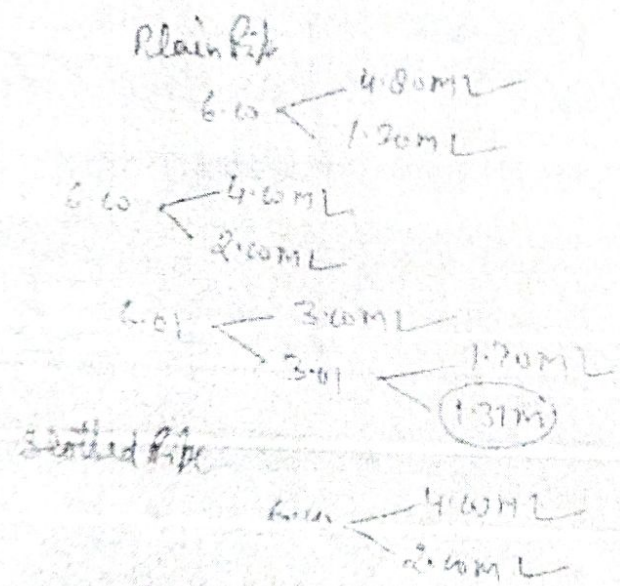 Plain Pipe
4.80m
6.00
1.20m
6.00
4.00m
2.00m
6.01
3.00m
3.01
1.70m
1.31m
Slotted Pipe
6.00
4.00m
2.00m